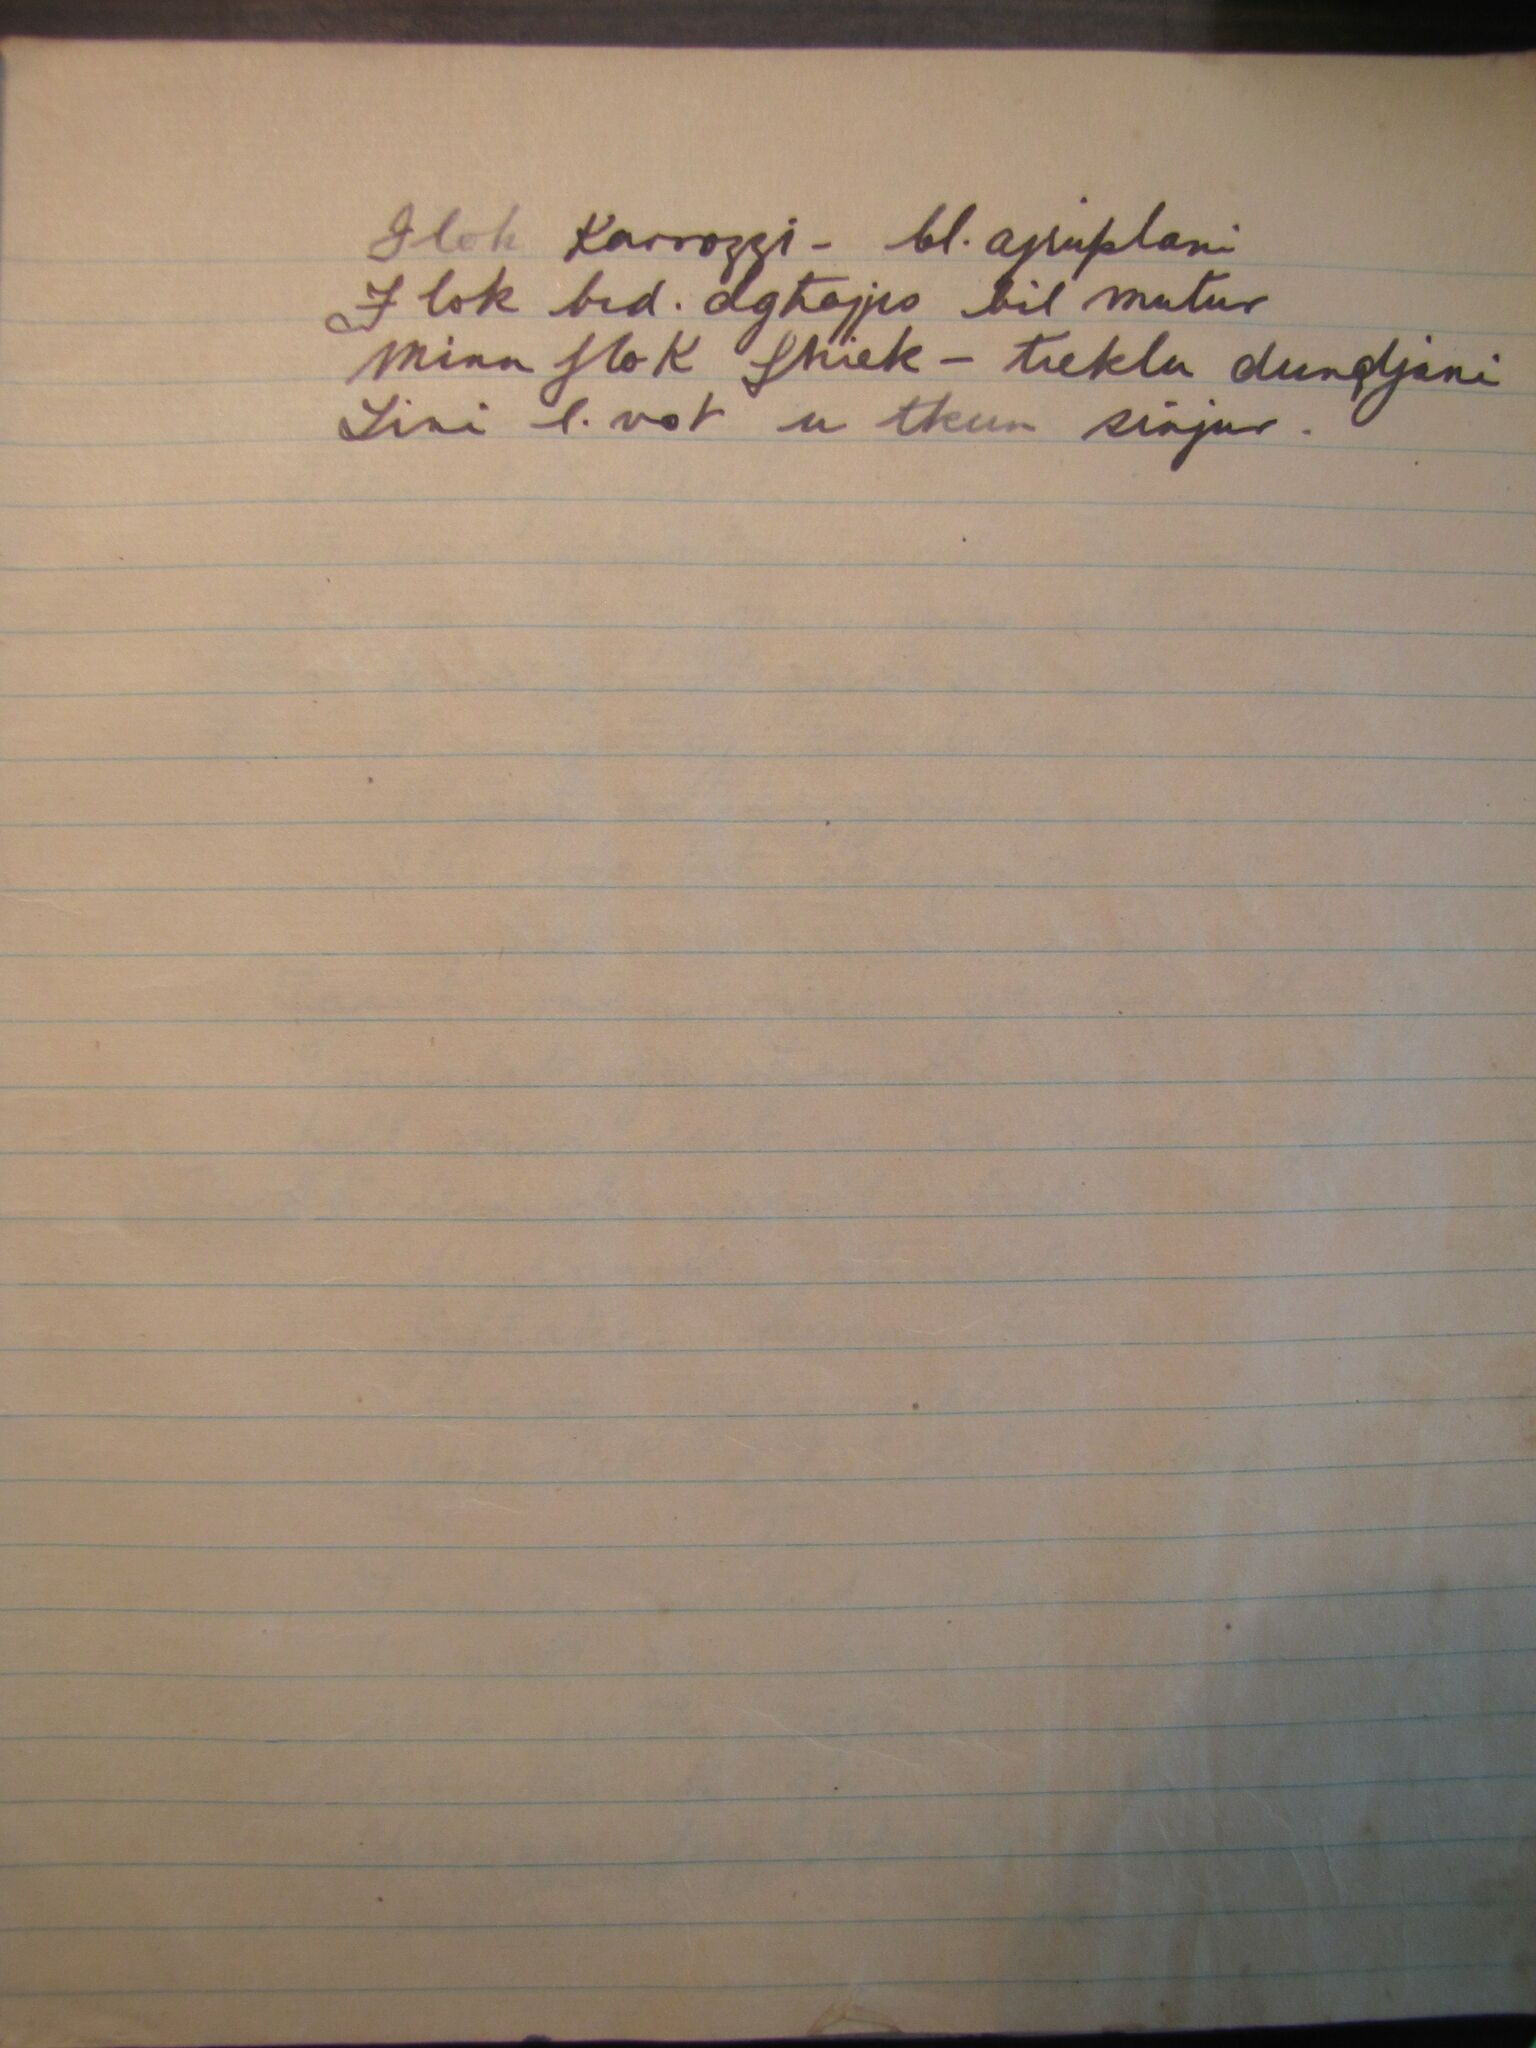 Flok Karrozzi - bl. ajruplani
Flok brd. dgħajjes bil mutur
Minn flok ftriek - treklu dundjani
Sini l. vot u tkun sinjur.